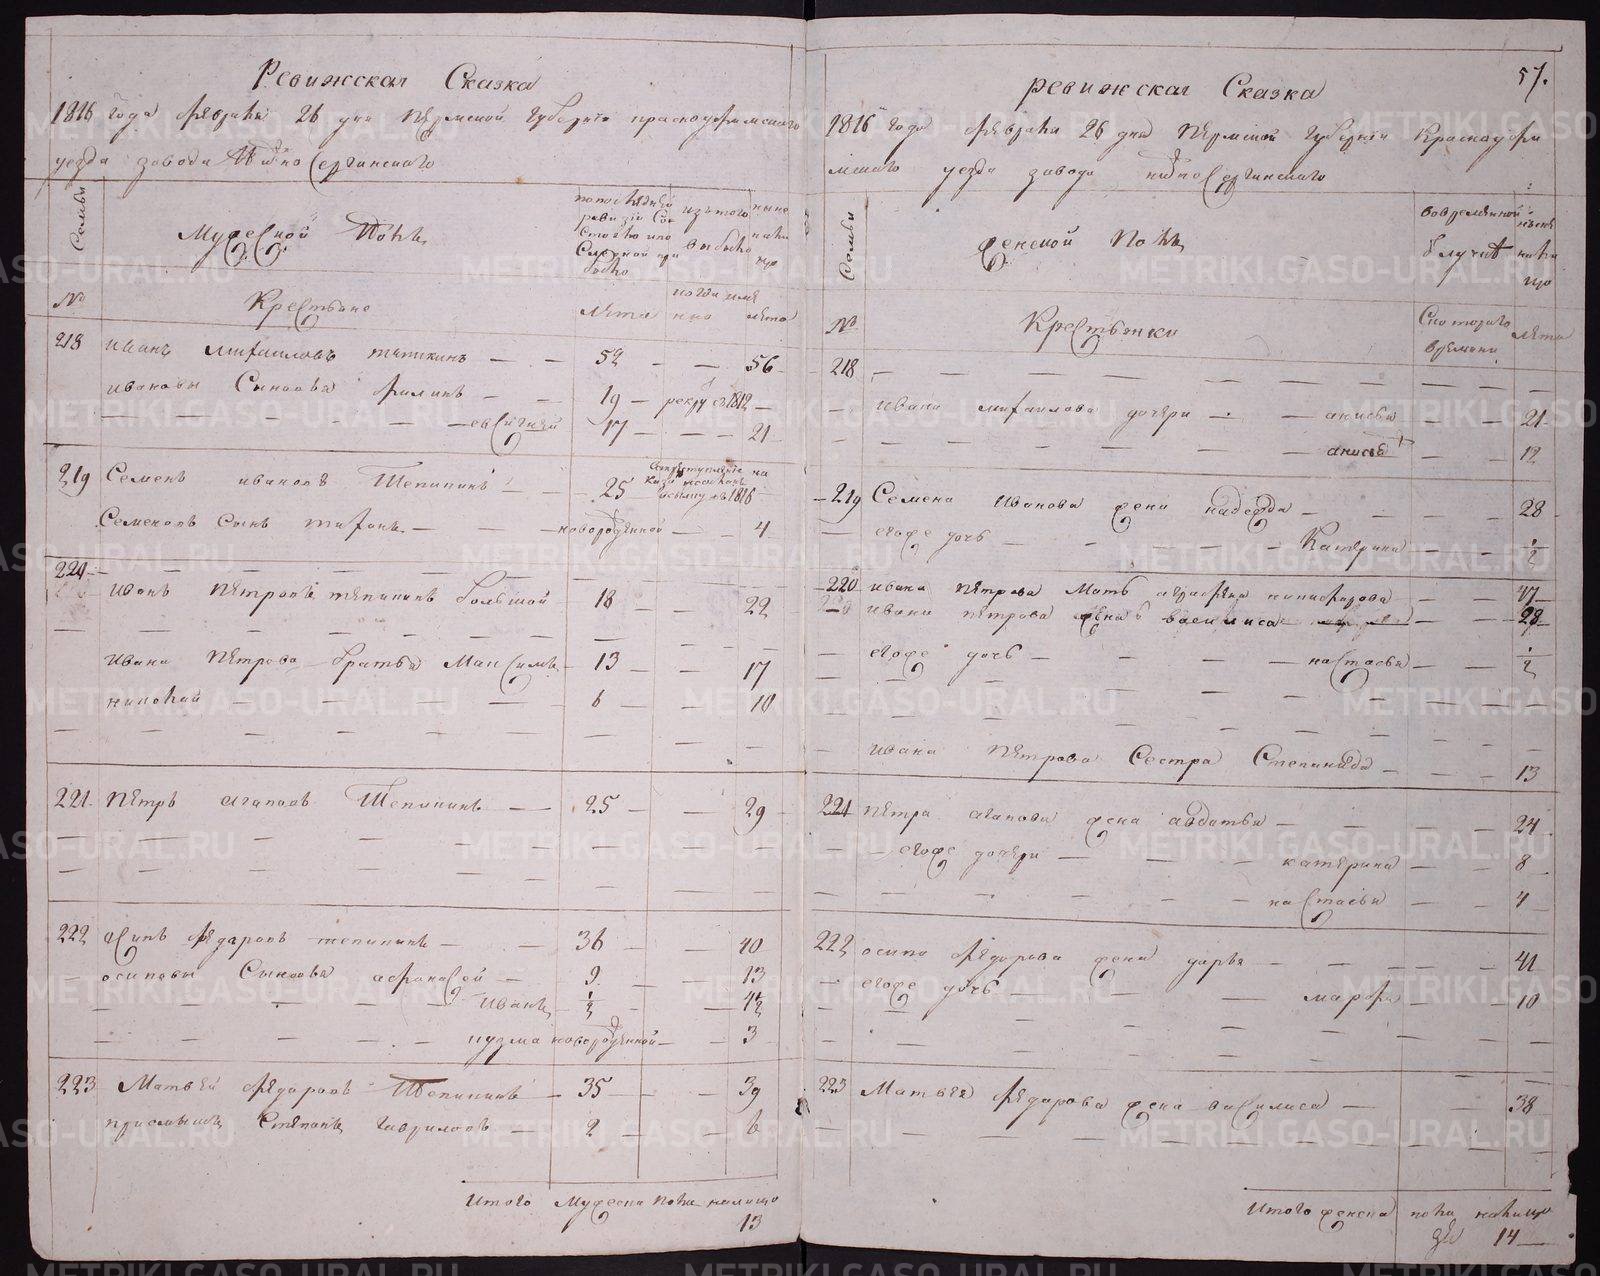 Ревижская Сказка
1816 года февраля 26 дня Пермской Губернии красноуфимскаго
уезда завода Нижно Сергинскаго
Семьи
Мужеской Полъ
по последней ревизiи Состояло и по Сме ной при было
изъ того выбыло
ныне на лицо
№
Крестьяне
лета
когда имянно
лета
218 иванъ михаиловъ тепикинъ 52 — — 56
ивановы Сыновья филипъ 19 — рекру въ 1812 —
евсигней 17 — — 21
219 Семенъ ивановъ Тепикинъ 25
на въ 1816
Семеновъ Сынъ новорожденной — 4
220
иванъ петровъ тепикинъ большой 18 — — 22
ивана петрова братья Максимъ 13 — — 17
николай 6 — — 10
221 петръ агаповъ Тепикинъ 25 — — 29
222 осипъ федаровъ тепикинъ 36 — — 40
осиповы Сыновья афонасей 9 — — 13
иванъ 1/2 — — 4 1/2
кузма новорожденной — 3
223 Матвей федаровъ Тепикинъ 35 — — 39
приемышъ Степанъ гавриловъ 2 — — 6
Итого Мужеска пола налицо
13
57.
ревижская Сказка
1816 года февраля 26 дня Пермской Губернии Красноуфи
мскаго уезда завода нижно Сергинскаго
Семьи
женской Полъ
во временной отлучке
ныне на лицо
№
Крестьянки
Съ котораго времени
лета
218
ивана михаилова дочери — анисья — 21
анисья — 12
219 Семена Иванова жена надежда — 28
егоже дочь — Катерина — 1/2
220 ивана петрова Мать — 47
ивана петрова жена василиса — 28
егоже дочь — настасья — 1/2
ивана петрова Сестра Степанида — 13
221 петра агапова жена авдатья — 24
егоже дочери — катерина — 8
настасья — 4
222 осипа федарова жена дарья — 41
егоже дочь — марфа — 10
223 Матвея федарова жена василиса — 38
Итого женска пола налицо
14
METRIKI.GASO-URAL.RU